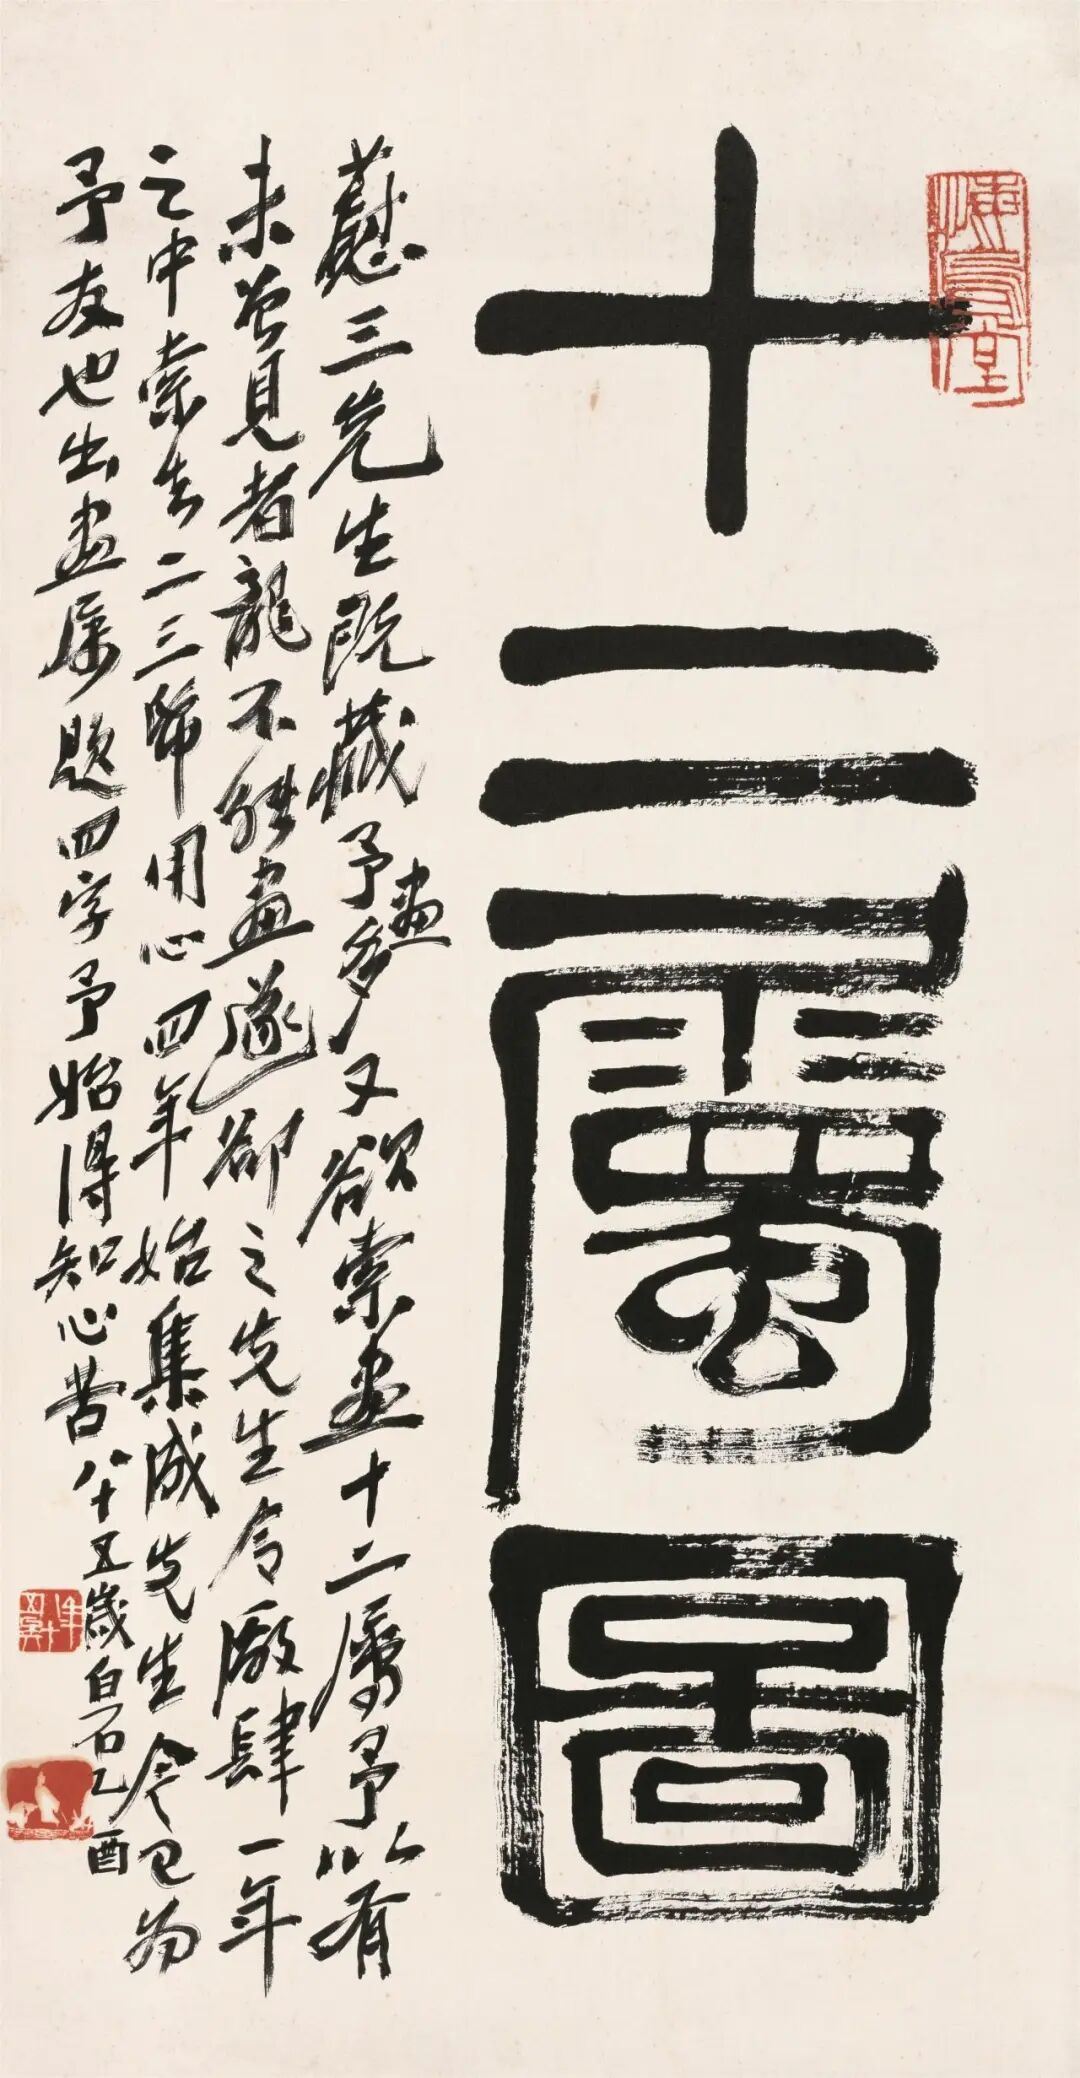 十二屬圖
三先生既藏予畫多又欲索畫十二屬予以有
未曾見者龍不能畫遂卻之先生令廠肆一年
之中索去二三用心四年始集成先生今已為
予友也出畫屬題四字予始得知心苦八十五歲白石乙酉
悔烏堂